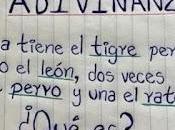 ADIVINANZ
a tiene el tigre per
o el león, dos veces
perro y una el rat
¿Qué es?